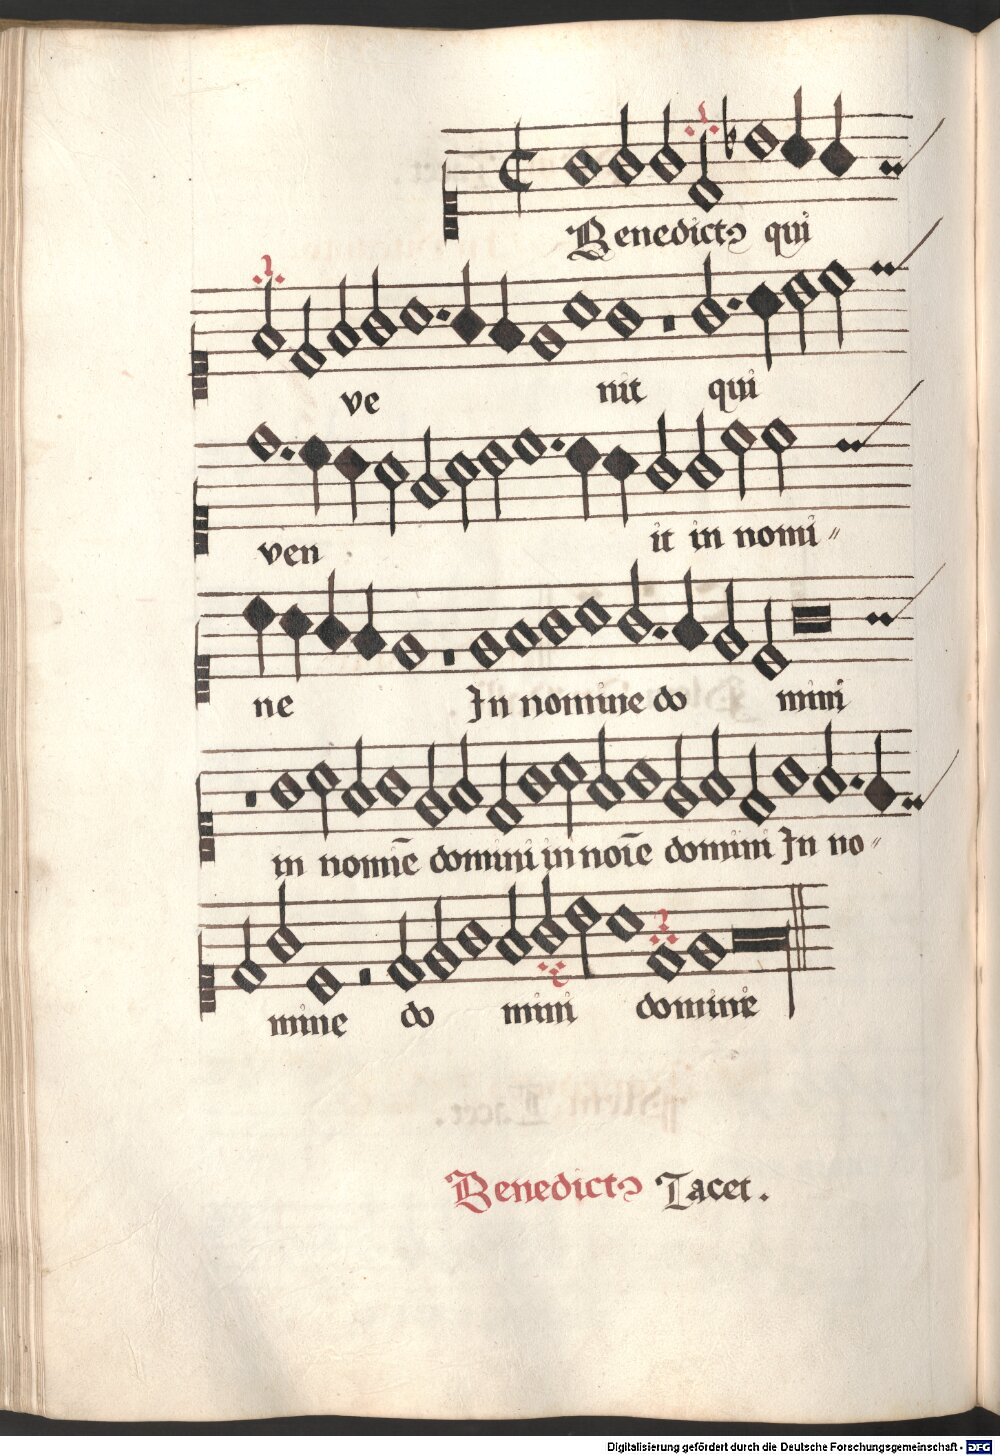 Benedictꝰ qui
ve nit qui
ven it in nomi〃
ne In nomine do mini
in nomīe domini in noīe domini In no〃
mine do mini domine
Benedictꝰ Tacet.
Digitalisierung gefördert durch die Deutsche Forschungsgemeinschaft - DFG